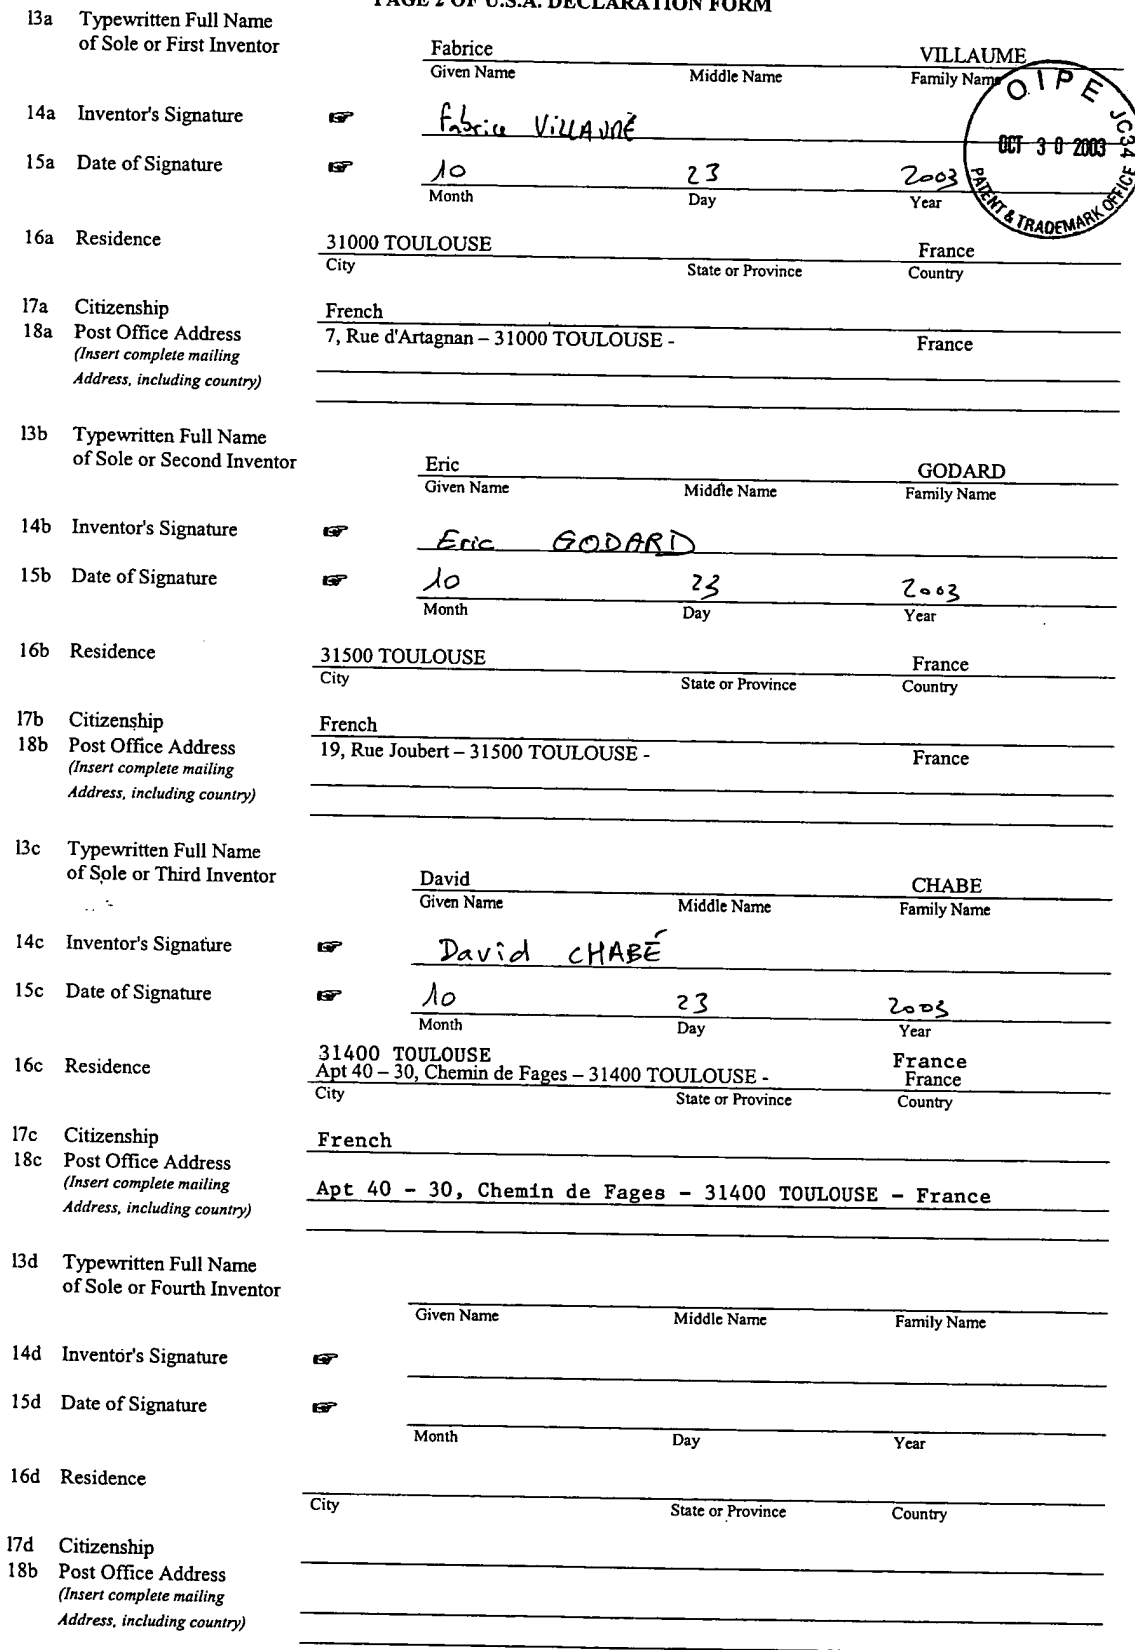 PAGE 2 OF U.S.A. DECLARATION FORM
13a Typewritten Full Name
of Sole or First Inventor
Fabrice VILLAUME
Given Name Middle Name Family Name
OIPE JC34
OCT 30 2003
PATENT & TRADEMARK OFFICE
14a Inventor's Signature ☞ Fabrice VILLAUME
15a Date of Signature ☞ 10 23 2003
Month Day Year
16a Residence 31000 TOULOUSE France
City State or Province Country
17a Citizenship French
18a Post Office Address 7, Rue d'Artagnan – 31000 TOULOUSE - France
(Insert complete mailing
Address, including country)
13b Typewritten Full Name
of Sole or Second Inventor
Eric GODARD
Given Name Middle Name Family Name
14b Inventor's Signature ☞ Eric GODARD
15b Date of Signature ☞ 10 23 2003
Month Day Year
16b Residence 31500 TOULOUSE France
City State or Province Country
17b Citizenship French
18b Post Office Address 19, Rue Joubert – 31500 TOULOUSE - France
(Insert complete mailing
Address, including country)
13c Typewritten Full Name
of Sole or Third Inventor
David CHABE
Given Name Middle Name Family Name
14c Inventor's Signature ☞ David CHABÉ
15c Date of Signature ☞ 10 23 2003
Month Day Year
31400 TOULOUSE France
16c Residence Apt 40 – 30, Chemin de Fages – 31400 TOULOUSE - France
City State or Province Country
17c Citizenship French
18c Post Office Address
(Insert complete mailing
Address, including country) Apt 40 - 30, Chemin de Fages - 31400 TOULOUSE - France
13d Typewritten Full Name
of Sole or Fourth Inventor
Given Name Middle Name Family Name
14d Inventor's Signature ☞
15d Date of Signature ☞
Month Day Year
16d Residence
City State or Province Country
17d Citizenship
18b Post Office Address
(Insert complete mailing
Address, including country)